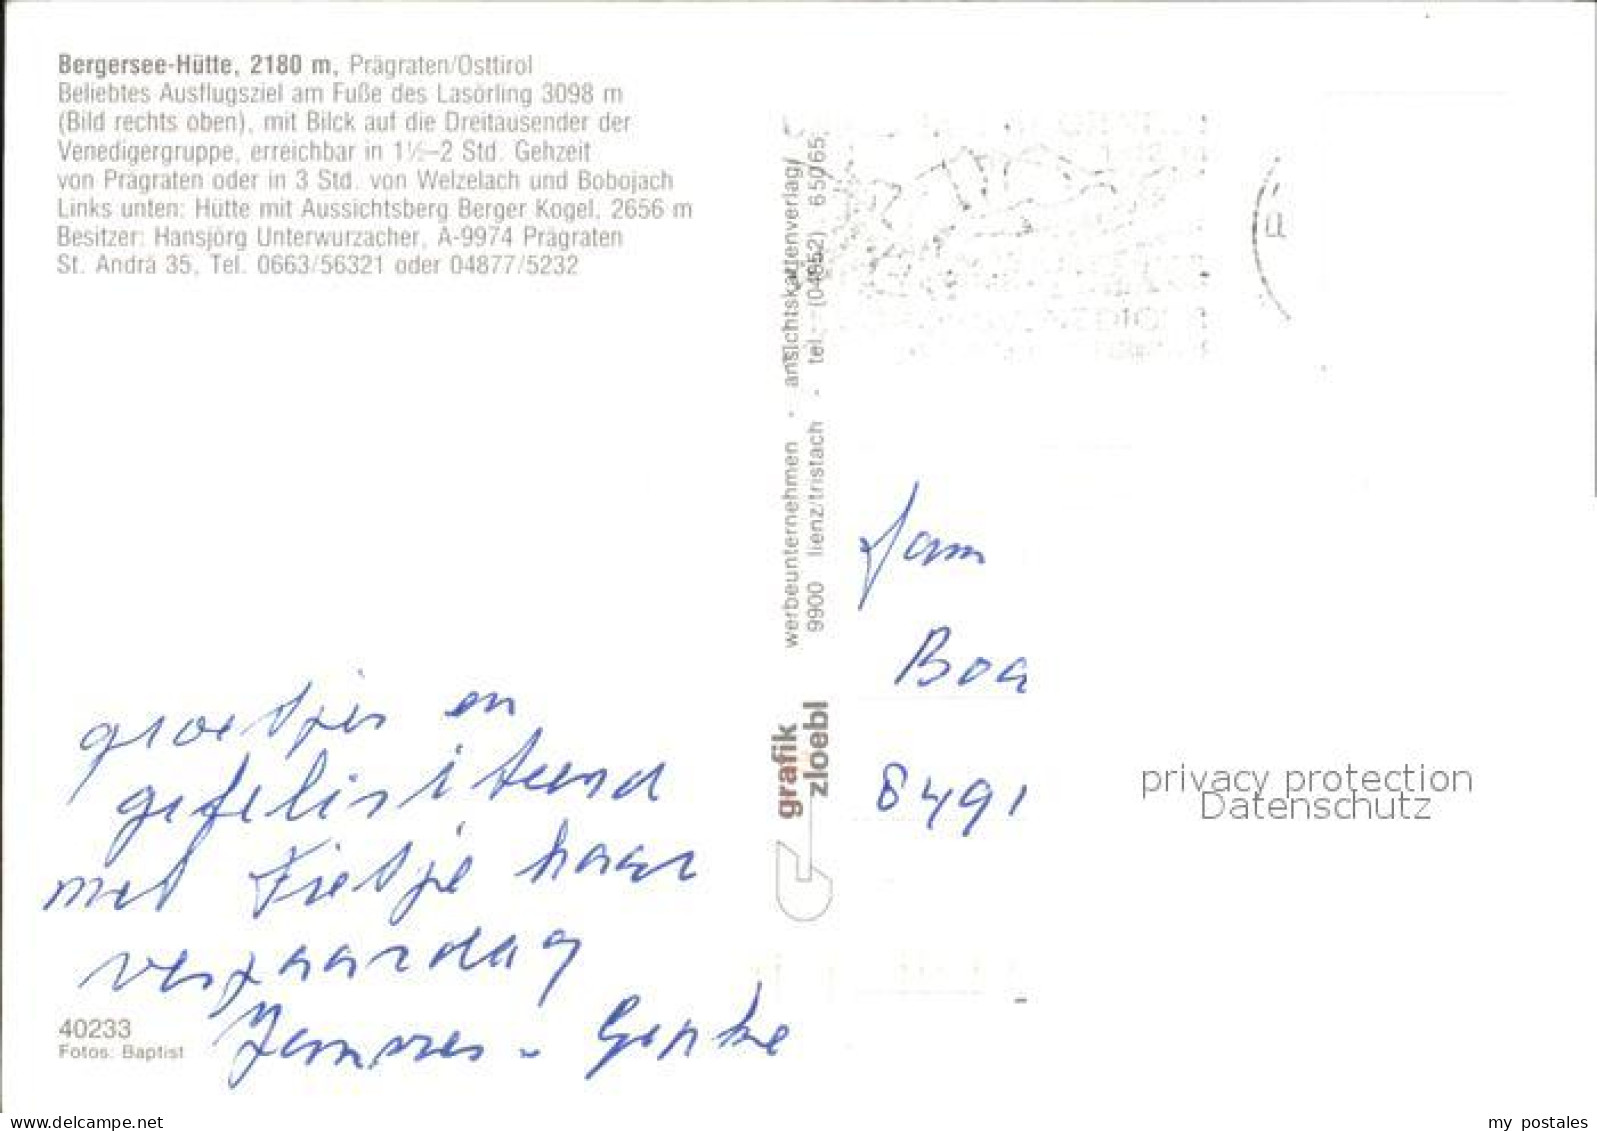 Bergersee-Hütte, 2180 m, Prägraten/Osttirol
Beliebtes Ausflugsziel am Fuße des Lasörling 3098 m
(Bild rechts oben), mit Bilck auf die Dreitausender der
Venedigergruppe, erreichbar in 1½–2 Std. Gehzeit
von Prägraten oder in 3 Std. von Welzelach und Bobojach
Links unten: Hütte mit Aussichtsberg Berger Kogel, 2656 m
Besitzer: Hansjörg Unterwurzacher, A-9974 Prägraten
St. Andrä 35, Tel. 0663/56321 oder 04877/5232
groetjes en
gefeliciteerd
met Fietje haar
verjaardag
40233
Fotos: Baptist
werbeunternehmen · ansichtskartenverlag
9900 lienz/tristach · tel. (04852) 65065
grafik
zloebl
fam
Boa
8491
privacy protection
Datenschutz
delcampe.net
my_postales